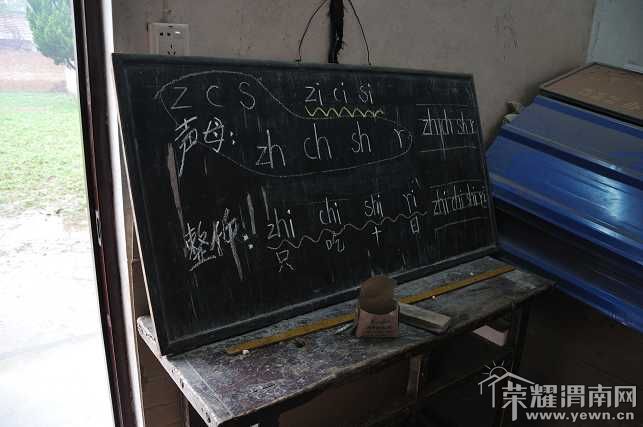 z c s zi ci si
声母: zh ch sh r zhi ch sh r
整体! zhi chi shi ri zhi chi shi ri
只 吃 十 日
荣耀渭南网
www.yewn.cn